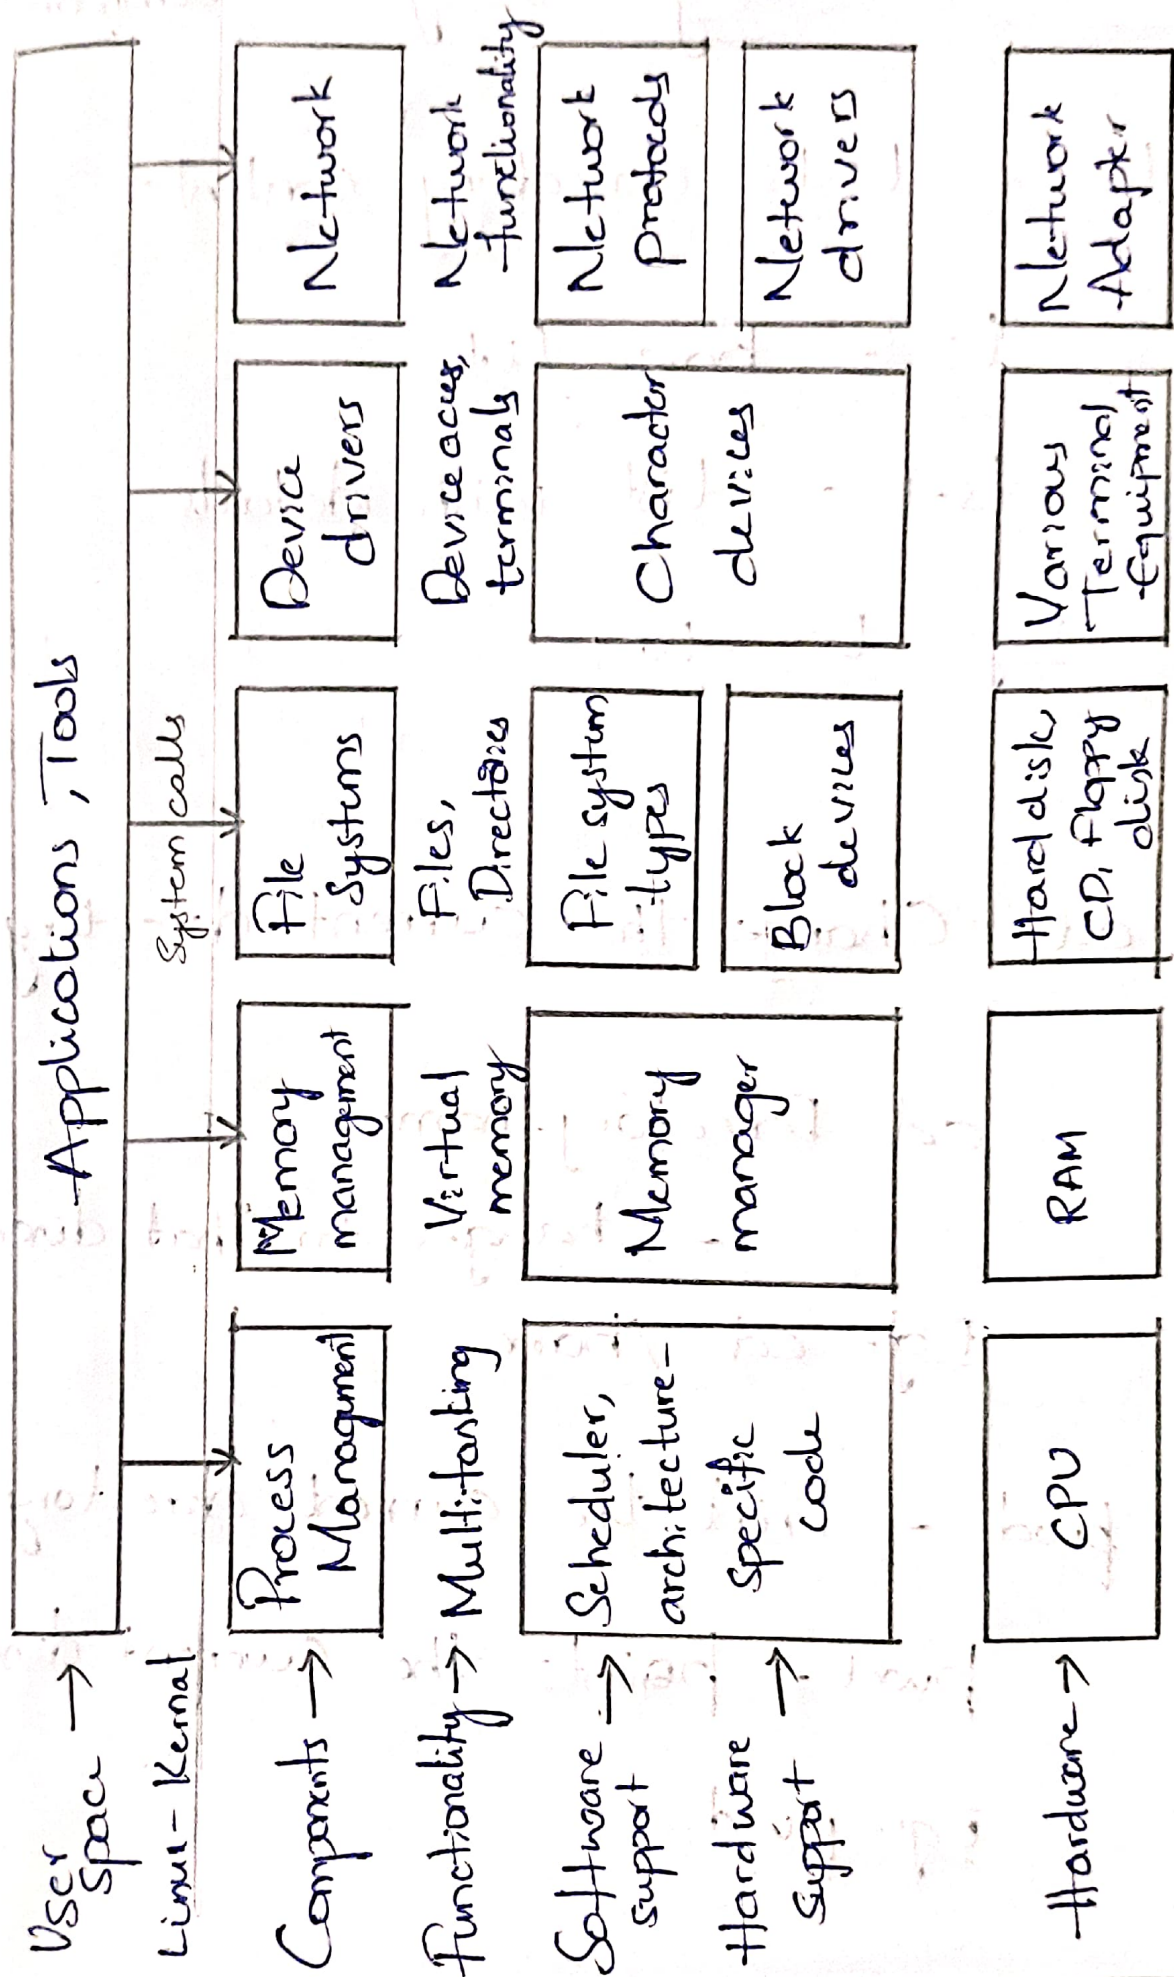 User
Space →
Applications, Tools
Linux-Kernal
System calls
Components →
Process
Management
Memory
management
File
Systems
Device
drivers
Network
Functionality →
Multitasking
Virtual
memory
Files,
Directories
Device acces,
terminals
Network
functionality
Software →
support
Hardware →
Support
Scheduler,
architecture-
specific
code
Memory
manager
File system
types
Block
devices
Character
devices
Network
protocols
Network
drivers
Hardware →
CPU
RAM
Hard disk,
CD, floppy
disk
Various
Terminal
Equipment
Network
Adapter